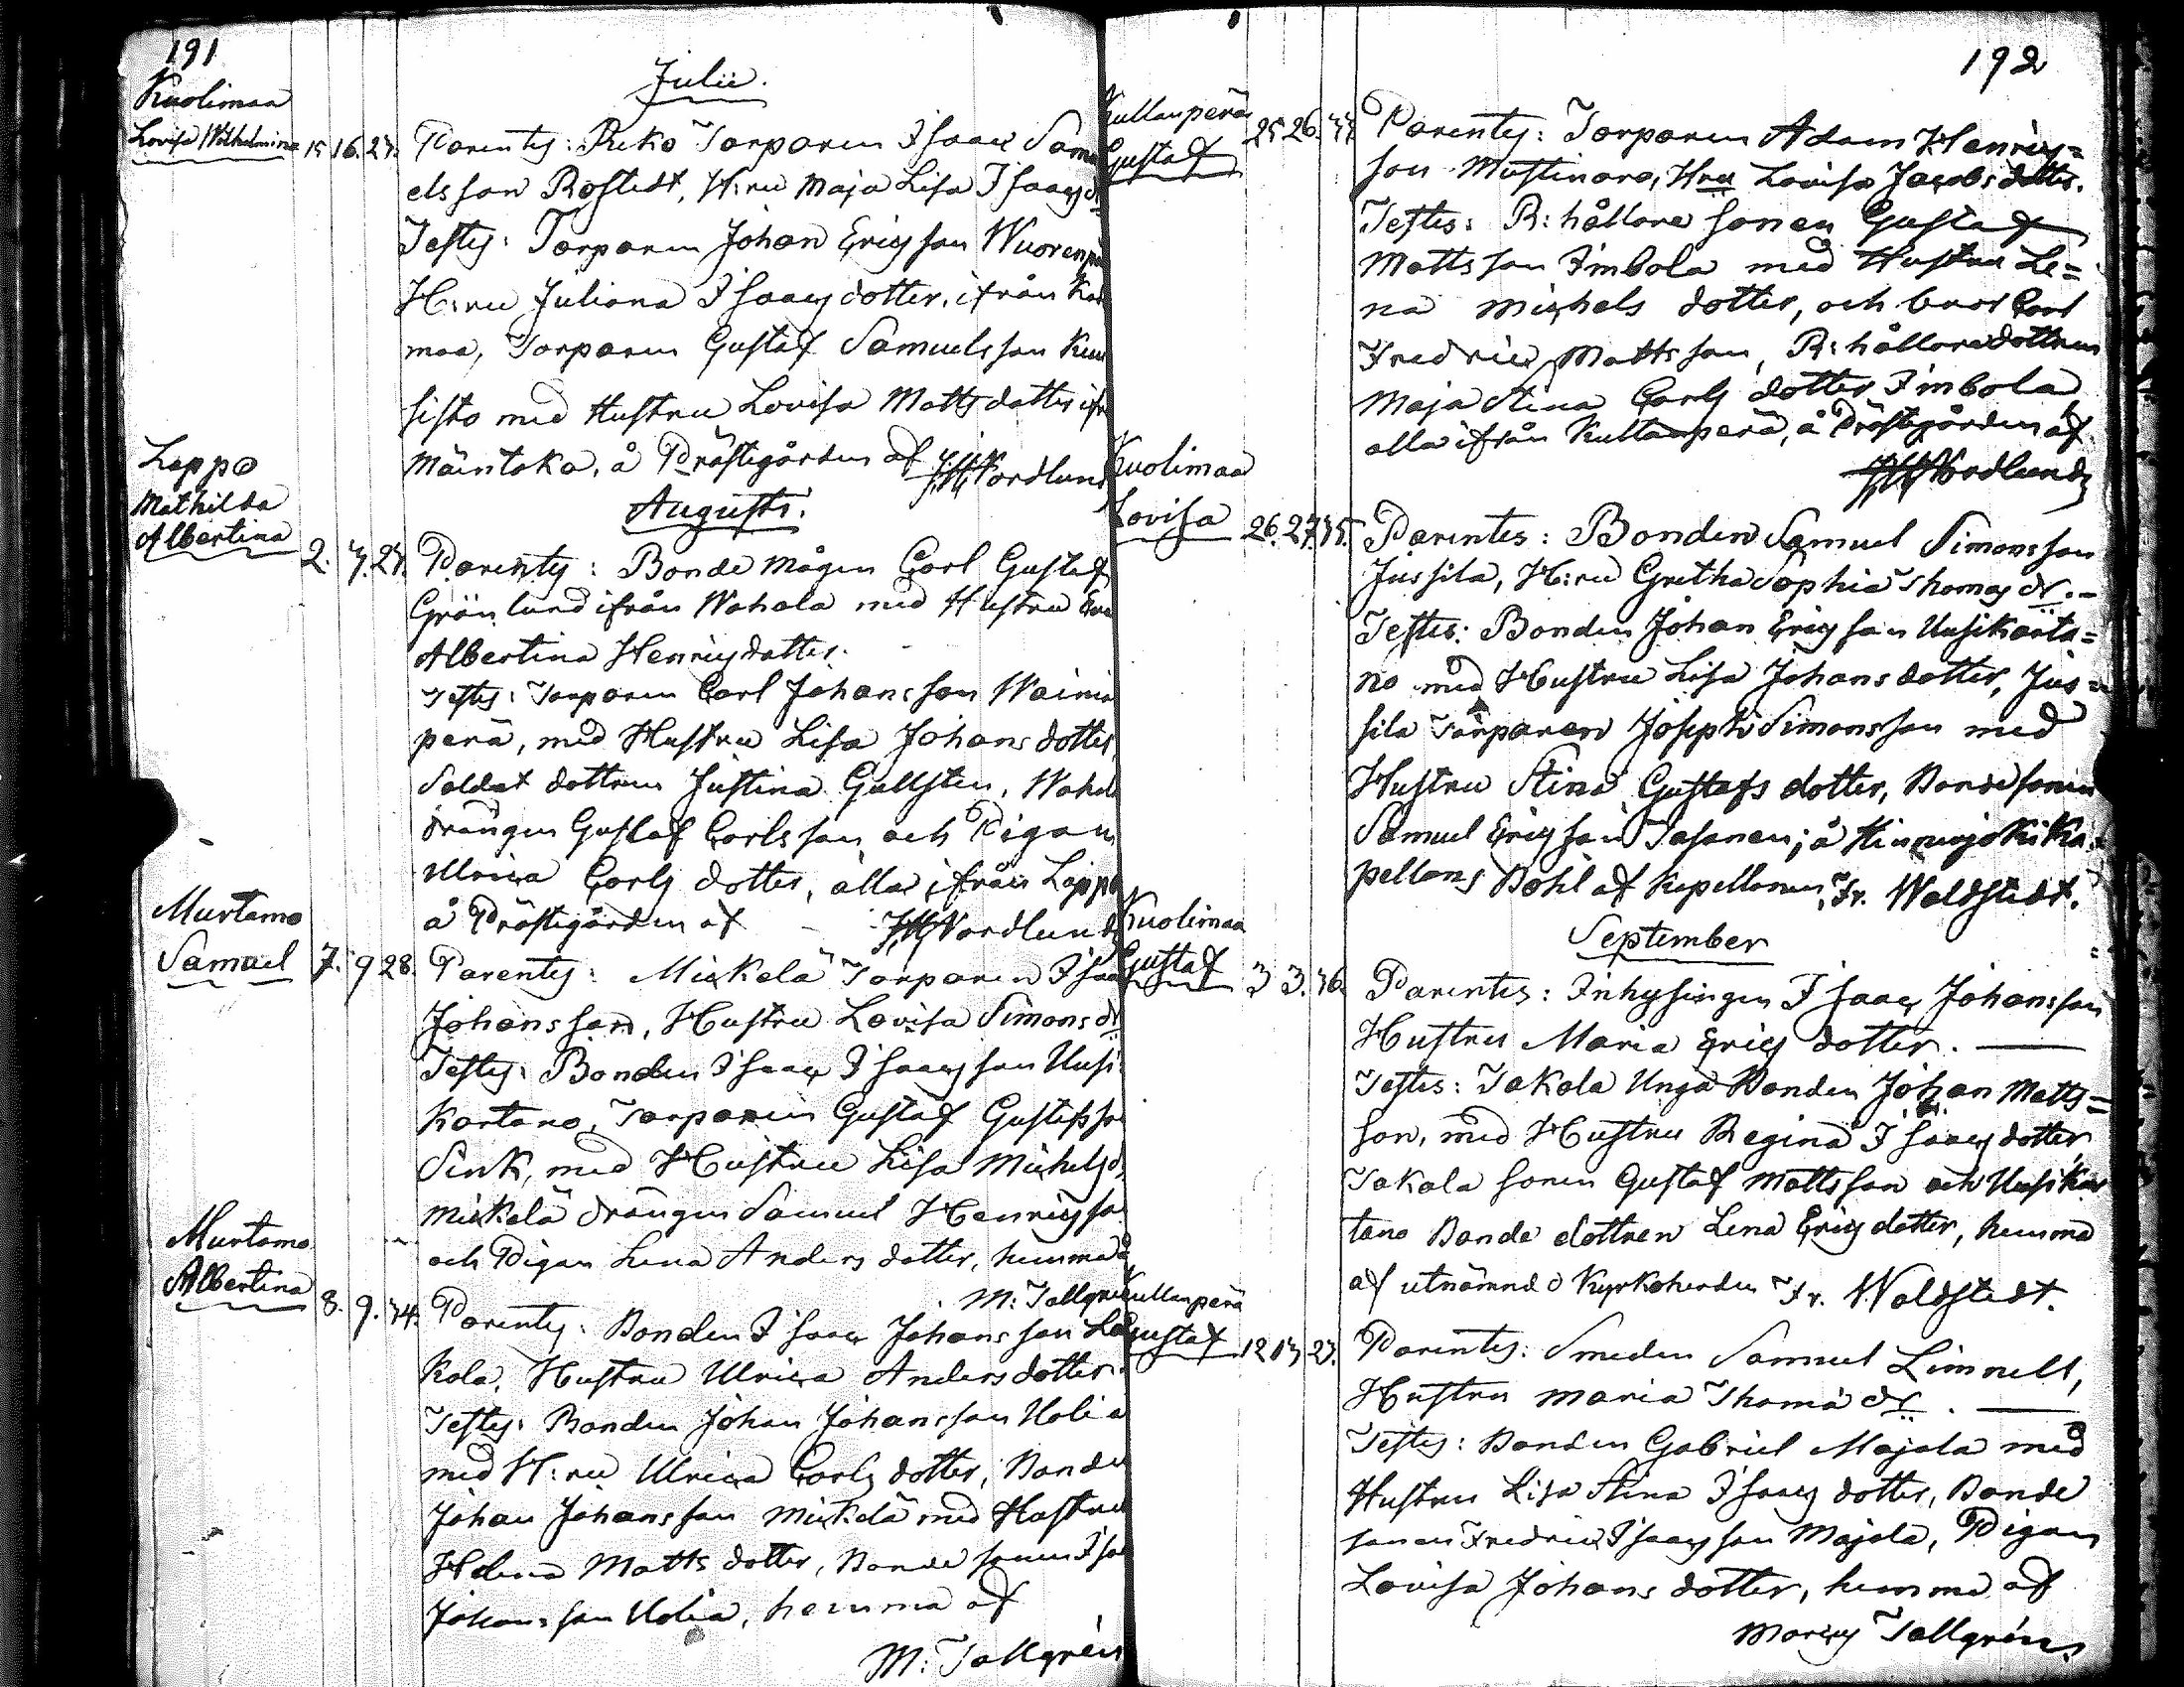 191
Julii.
Kuolimaa
Lovisa Wilhelmina 15 16. 27. Parentes: Riko Torparen Isaac Samu
elsson Rostedt, H:ru Maja Lisa Isaacsdr
Testes: Torparen Johan Ericsson Wuorenpä
H:ru Juliana Isaacsdotter, ifrån Kuo
maa, Torparen Gustaf Samuelsson Kuu
sisto med Hustru Lovisa Mattsdotter ifr
Mäntaka, å Prästegården af J.H. Nordlund
Augusti.
Lappo
Mathilda
Albertina 2. 7. 27. Parentes: Bonde mågen Carl Gustaf
Grönlund ifrån Wahala med Hustru Eva
Albertina Henricsdotter.
Testes: Torparen Carl Johansson Wainion
perä, med Hustru Lisa Johansdotter,
Soldat dottren Justina Gullsten, Wahala
drängen Gustaf Carlsson och Pigan
Ulrica Carls dotter, alla ifrån Lappo
å Prästegården af J.H. Nordlund
Murtamo
Samuel 7. 9 28. Parentes: Mickelä Torparen Isaac
Johansson, Hustru Lovisa Simonsdr
Testes: Bonden Isaac Isaacsson Uusi
Kartano, Torparen Gustaf Gustafsson
Sink, med Hustru Lisa Michelsdr
Mickelä drängen Samuel Henricsson
och Pigan Lena Anders dotter, hemma af
M: Tallgrén
Murtamo
Albertina 8. 9. 34. Parentes: Bonden Isaac Johansson La
kola, Hustru Ulrica Andersdotter.
Testes: Bonden Johan Johansson Uolia
med H:ru Ulrica Carls dotter, Bonden
Johan Johansson Mickelä med Hustru
Helena Matts dotter, Bonde sonen Isa
Johansson Uolia, hemma af
M: Tallgrén
192
Kullanperä
Gustaf 25 26. 37. Parentes: Torparen Adam Henrics=
son Mustinoro, Hru Lovisa Jacobsdotter.
Testes: R:hållare sonen Gustaf
MattssonImbola med Hustru Le=
na Michels dotter, och bror Carl
Fredric Mattsson, R:hållaredottren
Maja Stina Carls dotter Imbola
alla ifrån Kullanperä, å Prästegården af
J.H. Nordlund
Kuolimaa
Lovisa 26. 27. 35. Parentes: Bonden Samuel Simonsson
Jussila, H:ru Gretha Sophia Thomasdr.-
Testes: Bonden Johan Ericsson Uusikarta=
no med Hustru Lisa Johansdotter, Jus=
sila Torparen Joseph Simonsson med
Hustru Stina Gustafs dotter, Bondesonen
Samuel Ericsson Tasanen; å Hinnerjoki Ka=
pellans Bohl af Kapellanen, Fr. Waldstedt.
September
Kuolimaa
Gustaf 3 3. 36. Parentes: Inhysingen Isaac Johansson
Hustru Maria Erics dotter.
Testes: Takala Unga Bonden Johan Matts=
son, med Hustru Regina Isaacsdotter,
Takala sonen Gustaf Mattsson och Uusikar
tano Bonde dottren Lena Ericsdotter, hemma
af utnämnd Kyrkoherden Fr. Waldstedt.
Kullanperä
Gustaf 12 13 27. Parentes: Smeden Samuel Limnell,
Hustru Maria Thomæ dr.
Testes: Bonden Gabriel Majala med
Hustru Lisa Stina Isaacs dotter, Bonde
sonen Fredric Isaacsson Majala, Pigan
Lovisa Johans dotter, hemma af
Marcus Tallgrén.